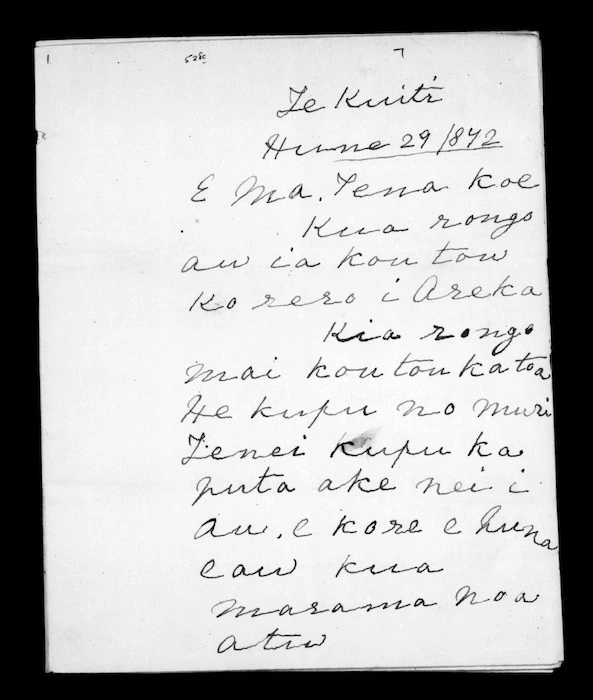 1 528c 7
Te Kuiti
Hune 29/872
E Ma. Tena koe
Kua rongo
au ia kou tou
Ko rero i Areka
Kia rongo
mai kou tou ka toa
He kupu no muri
Tenei kupu ka
puta ake nei i
au, e kore e huna
e au kua
marama noa
atu